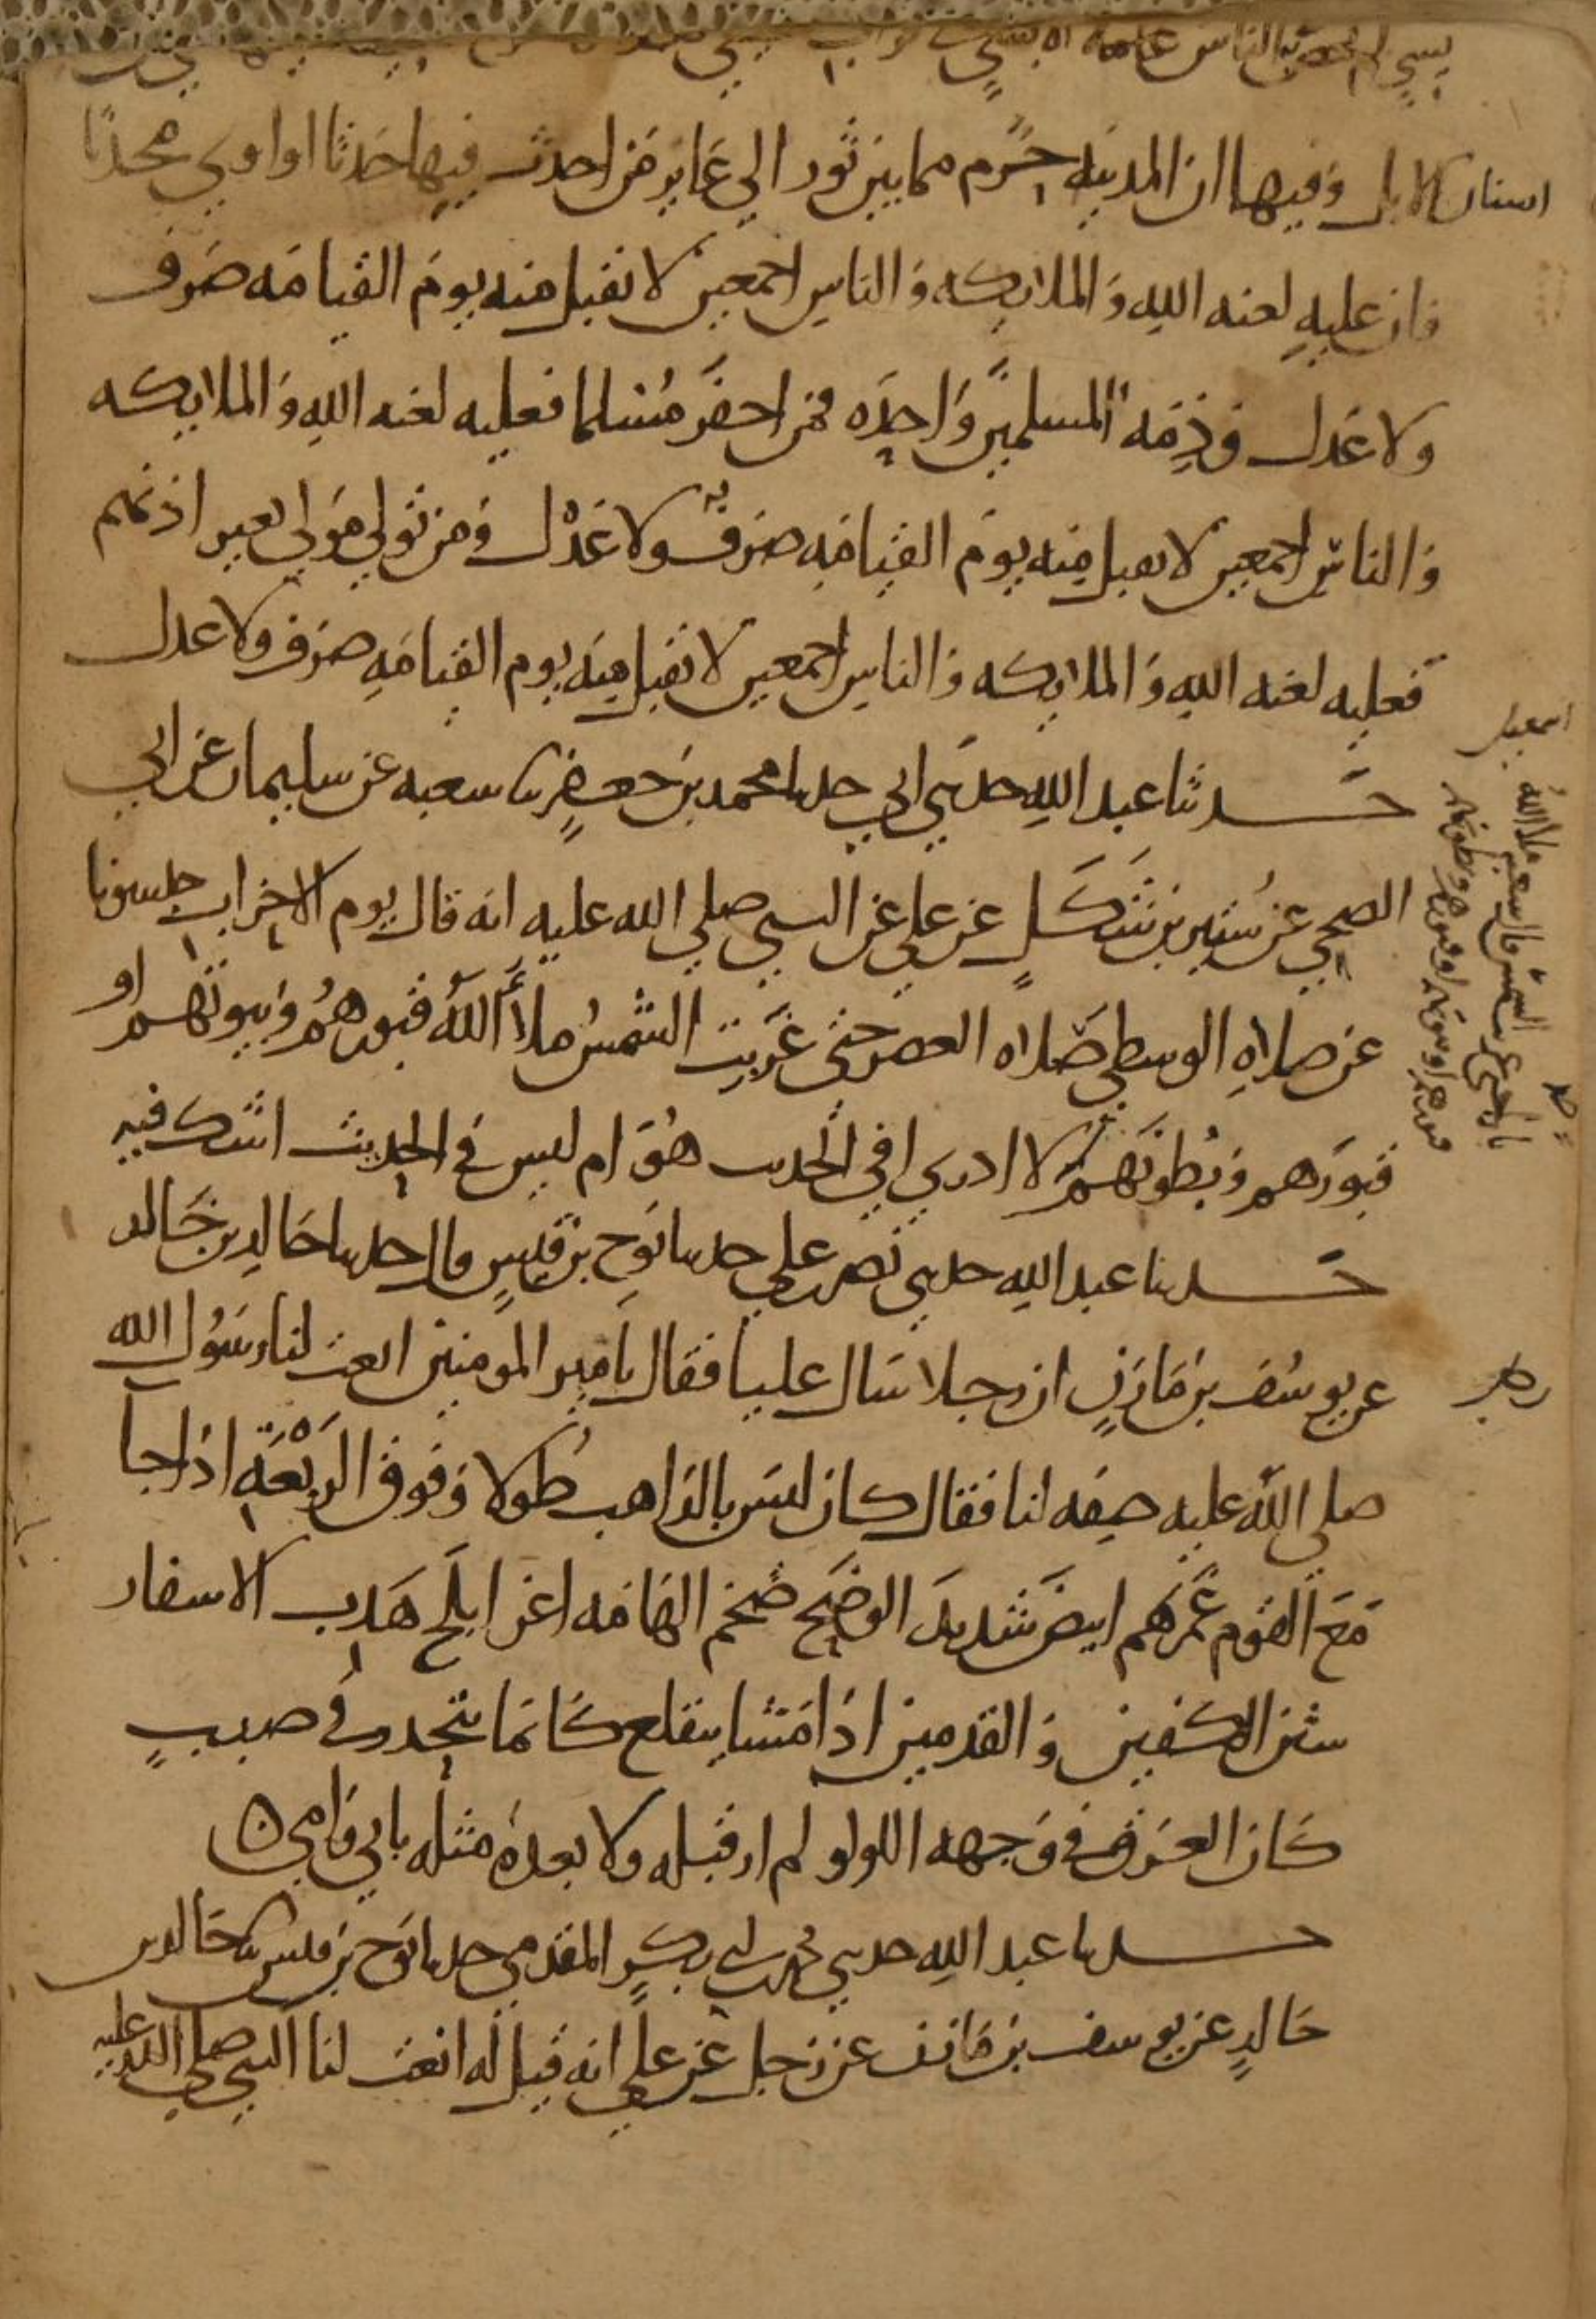 بشي لم الناس عامة الا بشي
اسنان الابل وفيها ان المدينه حرم مما بين ثور الي عاير من احدث فيها حدثا او اوي محدثا
فان عليه لعنه الله والملايكه والناس اجمعين لا تقبل منه يوم القيامه صرف
ولا عدل وذمه المسلمين واحده فمن اخفر مسلما فعليه لعنه الله والملايكه
والناس اجمعين لا يقبل منه يوم القيامه صرف ولا عدل ومن تولي مولي بغير اذنهم
فعليه لعنه الله والملايكه والناس اجمعين لا تقبل منه يوم القيامه صرف ولا عدل
حدثنا عبد الله حدثني ابي حدثنا محمد بن جعفر ثنا شعبه عن سليمان عن ابي
الضحي عن شتير بن شكل عن علي عن النبي صلي الله عليه انه قال يوم الاحزاب حبسونا
عن صلاه الوسطي صلاه العصر حتي غربت الشمس ملأ الله قبورهم وبيوتهم او
قبورهم وبطونهم لا ادري افي الحديث هو ام ليس في الحديث اشك فيه
حدثنا عبد الله حدثني نصر بن علي حدثنا نوح بن قيس قال حدثنا خالد بن خالد
عن يوسف بن مازن ان رجلا سال عليا فقال يامير المومنين انعت لنا رسول الله
صلي الله عليه صفه لنا فقال كان ليس بالذاهب طولا وفوق الربعة اذا جا
مع القوم غمرهم ابيض شديد الوضح ضخم الهامه اغر ابلج هدب الاشفار
شثن الكفين والقدمين اذا مشا يتقلع كانما ينحدر في صبب
كان العرق في وجهه اللولو لم ار قبله ولا بعده مثله بابي وامي ٥
حدثنا عبد الله حدثني محمد بن ابي بكر المقدمي حدثنا نوح بن قيس ثنا خالد بن
خالد عن يوسف بن مازن عن رجل عن علي انه قيل له انعت لنا النبي صلي الله عليه